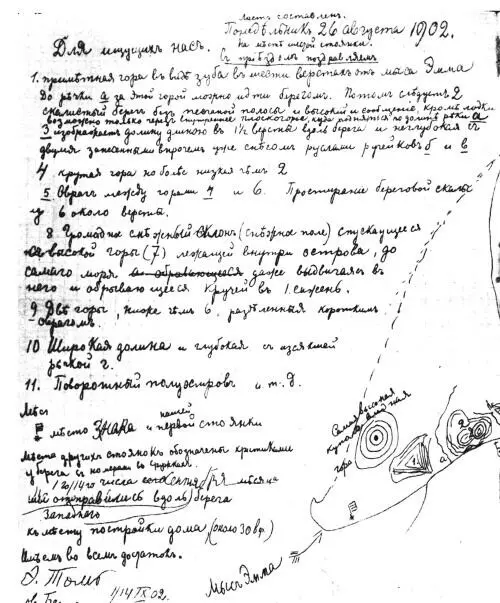 листъ составленъ.
Понедѣльникъ 26 августа 1902.
Для ищущихъ насъ.
На мѣстѣ стоянки.
Съ приѣздомъ поздравляемъ
1. примѣтная гора въ видѣ зуба въ шести верстахъ отъ мыса Эмма
До рѣчки а за этой горой можно идти берегомъ. Потомъ слѣдуетъ 2
скалистый берегъ безъ полосы и высокій и кромѣ лодки
возможно только черезъ внутреннее плоскогорье, куда подняться по долинѣ рѣки а
3 изображаетъ долину длиною въ 1½ версты вдоль берега и неглубокая съ
двумя занесенными впрочемъ уже снѣгомъ руслами ручейковъ б и в
4 крутая гора но болѣе низкая чѣмъ 2
5 Оврагъ между горами 4 и 6. Простираніе береговой скалы
6 около версты.
8 Громадный снѣжный склонъ (снѣжное поле) спускающееся
высокой горы (7) лежащей внутри острова, до
самаго моря даже выдвигаясь въ
него и обрывающееся кручей въ 1 сажень.
9 Двѣ горы, ниже чѣмъ 6, раздѣленныя короткимъ
оврагомъ.
10 Широкая долина и глубокая съ изсякшей
рѣчкой г.
11. Поворотный полуостровъ и т. д.
мѣсто знака и нашей первой стоянки
Мѣста другихъ стоянокъ обозначены крестиками
у берега съ номерами въ кружкахъ.
1го/14го числа сентября мѣсяца
отправились вдоль берега
Западнаго
къ мѣсту постройки дома (около 30 в.)
Имѣемъ во всемъ достатокъ.
Э. Толль
1/14 IX 02.
Самая высокая
гора
Мысъ Эмма
III
1
2
а